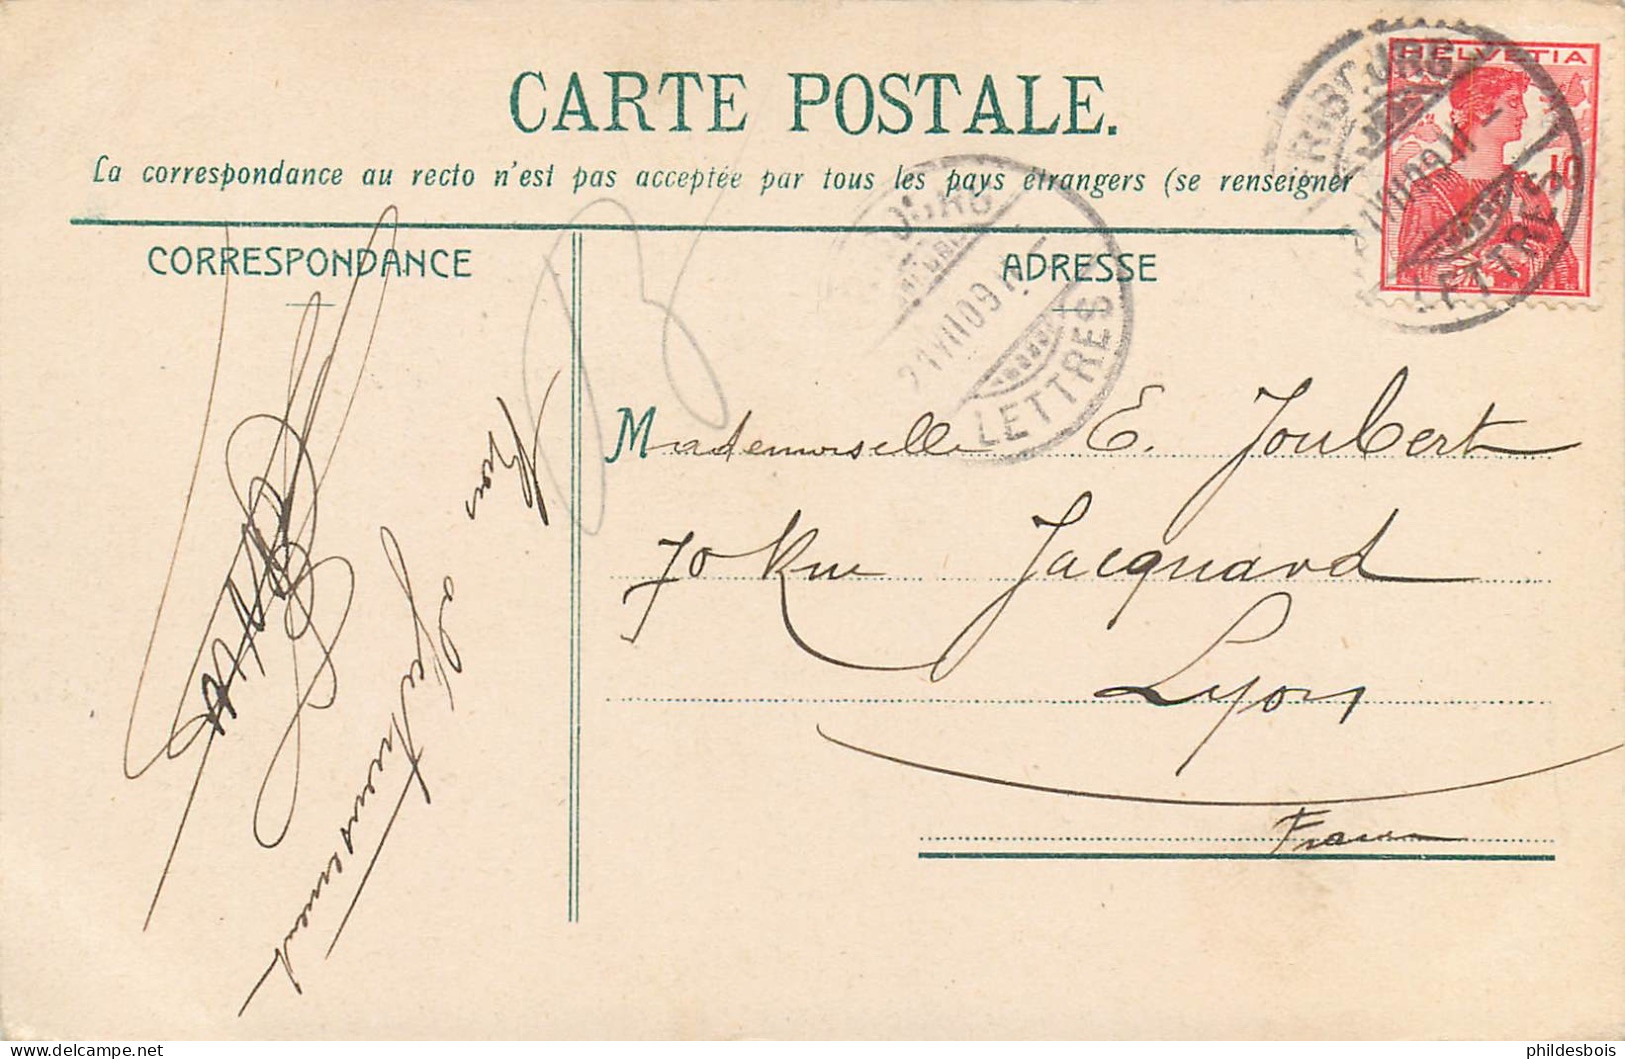 CARTE POSTALE.
La correspondance au recto n'est pas acceptée par tous les pays étrangers (se renseigner
CORRESPONDANCE
ADRESSE
HELVETIA
10
FRIBOURG
21 VII 09
LETTRES
21 VII 09
LETTRES
Mademoiselle E. Joubert
70 Rue Jacquard
Lyon
France
Bien
à
phildesbois